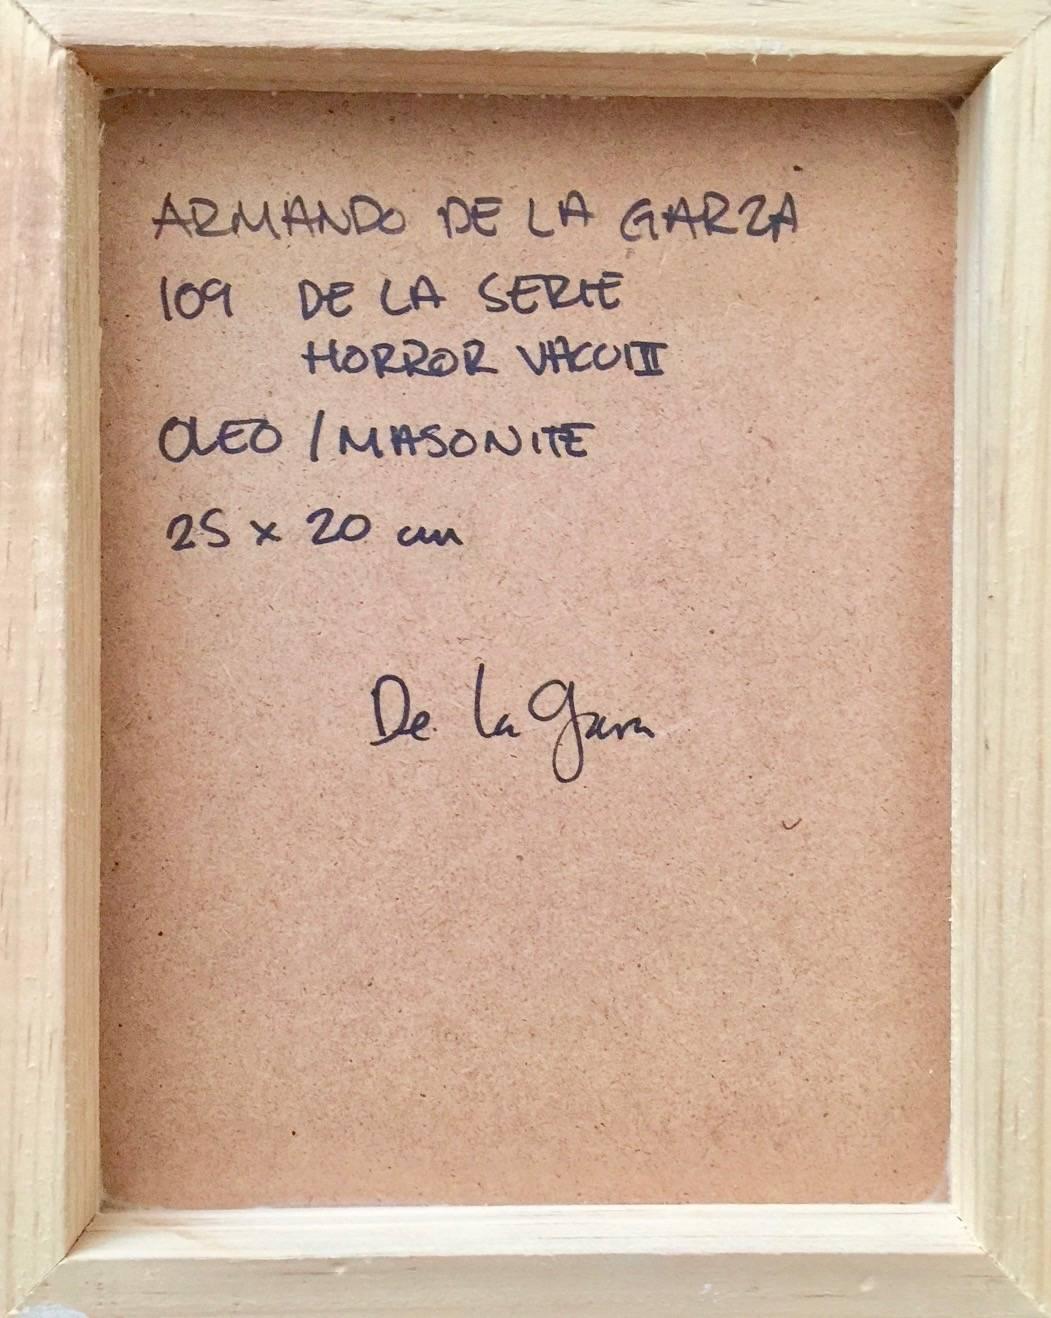 ARMANDO DE LA GARZA
109 DE LA SERIE
HORROR VACUI II
OLEO / MASONITE
25 x 20 cm
De la Garza